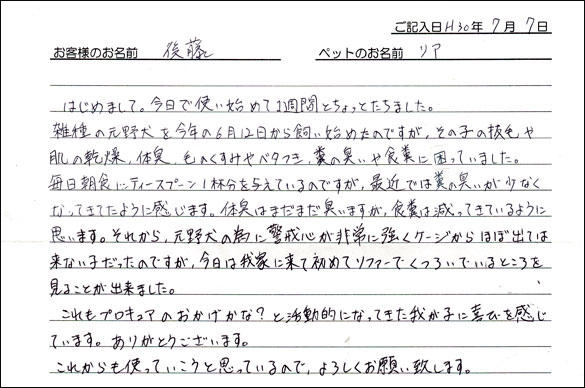 ご記入日H30年 7月 7日
お客様のお名前 後藤 ペットのお名前 リア
はじめまして。今日で使い始めて1週間とちょっとたちました。
雑種の元野犬を今年の6月12日から飼い始めたのですが、その子の抜毛や
肌の乾燥、体臭、毛のくすみやベタつき、糞の臭いや食糞に困っていました。
毎日朝食にティースプーン1杯分を与えているのですが、最近では糞の臭いが少なく
なってきてたように感じます。体臭はまだまだ臭いますが、食糞は減ってきているように
思います。それから、元野犬の為に警戒心が非常に強くケージからほぼ出ては
来ない子だったのですが、今日は我家に来て初めてソファーでくつろいでいるところを
見ることが出来ました。
これもプロキュアのおかげかな?と活動的になってきた我が子に喜びを感じ
ています。ありがとうございます。
これからも使っていこうと思っているので、よろしくお願い致します。